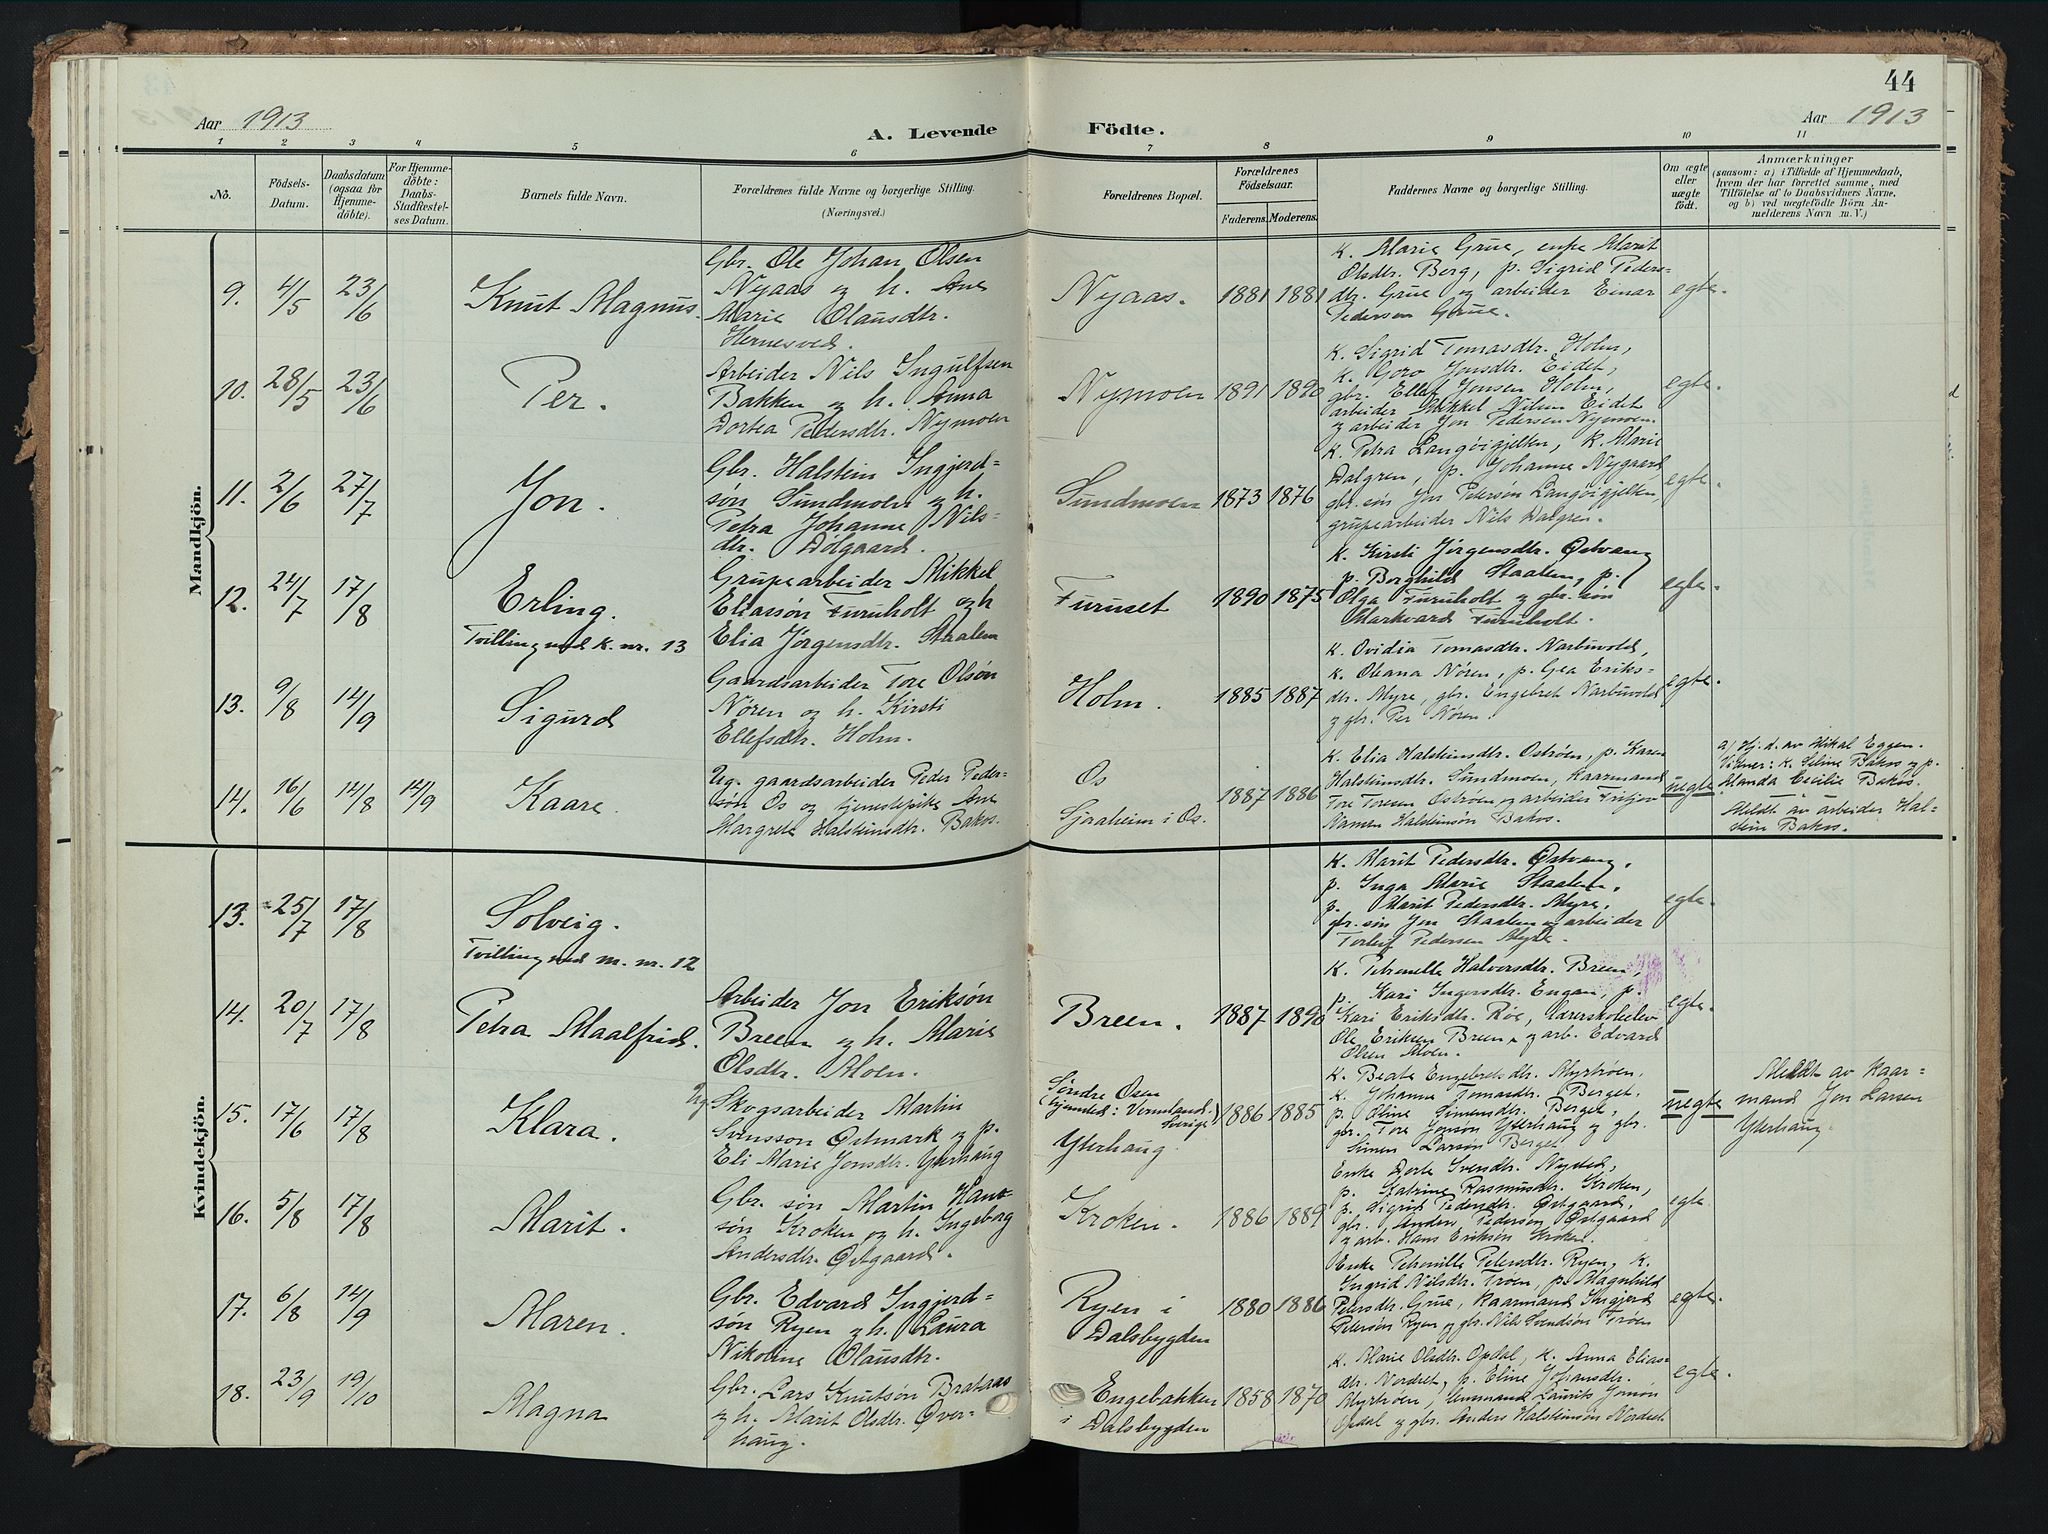 44
Aar 1913
A. Levende Födte.
Aar 1913
1 2 3 4 5 6 7 8 9 10 11
No.
Födsels-
Datum.
Daabsdatum
(ogsaa for
Hjemme-
döbte).
For Hjemme-
döbte:
Daabs-
Stadfæstel-
ses Datum.
Barnets fulde Navn.
Forældrenes fulde Navne og borgerlige Stilling.
(Næringsvei.)
Forældrenes Bopæl.
Forældrenes
Födselsaar.
Faderens. Moderens.
Faddernes Navne og borgerlige Stilling.
Om ægte
eller
uægte
födt.
Anmærkninger
(saasom: a) i Tilfælde af Hjemmedaab,
hvem der har forrettet samme, med
Tilföielse af to Daabsvidners Navne,
og b) ved uægtefödte Börn An-
melderens Navn m. V.)
Mandkjön.
9. 4/5 23/6
Knut Magnus.
Gbr. Ole Johan Olsen
Nyaas og h. Ane
Marie Olausdtr.
Hernesved.
Nyaas. 1881 1881
k. Marie Grue, enke Marit
Olsdtr. Berg, p. Sigrid Peders-
dtr. Grue og arbeider Einar
Pedersen Grue.
egte.
10. 28/5 23/6
Per.
Arbeider Nils Ingulfsen
Bakken og h. Anna
Dortea Pedersdtr. Nymoen
Nymoen 1891 1890
k. Sigrid Tomasdtr. Holm,
k. Goro Jonsdtr. Eidet,
gbr. Ellef Jonsen Holm,
arbeider Mikkel Nilsen Eidet
og arbeider Jon Pedersen Nymoen.
egte.
11. 2/6 27/7
Jon.
Gbr. Halstein Ingjerd-
søn Sundmoen og h.
Petra Johanne Nils-
dtr. Dølgaard.
Sundmoen 1873 1876
k. Petra Langøigjelten, k. Marie
Dalgren, p. Johanne Nygaard,
gbr. søn Jon Petersøn Langøigjelten
grupearbeider Nils Dalgren.
egte.
12. 24/7 17/8
Erling.
Tvilling med k. nr. 13
Grupearbeider Mikkel
Eliassøn Furuholt og h
Elia Jørgensdtr. Staalen
Furuset 1890 1875
k. Kirsti Jørgensdtr. Østvang
p. Borghild Staalen, p.
Olga Furuholt og gbr. søn
Markvard Furuholt.
egte.
13. 9/8 14/9
Sigurd
Gaardsarbeider Tore Olsøn
Nøren og h. Kirsti
Ellefsdtr. Holm.
Holm. 1885 1887
k. Ovidia Tomasdtr. Narbuvold,
k. Oleana Nøren, p. Gea Eriks-
dtr. Myre, gbr. Engebret Narbuvold
og gbr. Per Nøren.
egte.
14. 16/6 14/8 14/9
Kaare.
Ug. gaardsarbeider Peder Peder-
søn Os og tjenestepike Ane
Margrete Halsteinsdtr. Bakos.
Os
Sjaaheim i Os.
1887 1886
k. Elia Halsteinsdtr. Ostrøen, p. Karen
Halsteinsdtr. Sundmoen, kaarmand
Tore Toresen Ostrøen og arbeider Fritjov
Namsen Halsteinsøn Bakos.
uegte
a) Hj. d. av Mikal Eggen.
Vidner: k. Seline Bakos og p.
Manda Cecilie Bakos.
Meldt av arbeider Hal-
stein Bakos.
Kvindekjön.
13. 25/7 17/8
Solveig.
Tvilling med m. nr. 12
k. Marit Pedersdtr. Østvang,
p. Inga Marie Staalen,
p. Marit Pedersdtr. Myre,
gbr. søn Jon Staalen og arbeider
Torleif Pedersen Myre.
egte.
14. 20/7 17/8
Petra Maalfrid.
Arbeider Jon Eriksøn
Breen og h. Marie
Olsdtr. Moen.
Breen. 1887 1890
k. Petronelle Halvorsdtr. Breen,
p. Kari Ingersdtr. Engan, p.
Kari Eriksdtr. Røe, lærerskoleelev
Ole Eriksen Breen og arb. Edvard
Olsen Moen.
egte.
15. 17/6 17/8
Klara.
Ug Skogsarbeider Martin
Svensson Østmark og p.
Eli Marie Jonsdtr. Ytterhaug
Søndre Osen
(hjemsted: Vermland, Sverige)
Ytterhaug.
1886 1885
k. Beate Engebretsdtr. Myrtrøen,
k. Johanne Tomasdtr. Berget,
p. Oline Simensdtr. Berget,
gbr. Tore Jonsøn Ytterhaug og gbr.
Simen Larsøn Berget.
uegte
Meldt av kaar-
mand Jon Larsen
Ytterhaug.
16. 5/8 17/8
Marit.
Gbr. søn Martin Hans-
søn Kroken og h. Ingeborg
Andersdtr. Østgaard.
Kroken. 1886 1889
Enke Dorte Svensdtr. Nysted,
p. Katrine Rasmusdtr. Kroken,
p. Sigrid Pedersdtr. Østgaard,
gbr. Anders Pedersøn Østgaard
og arb. Hans Eriksøn Kroken.
egte.
17. 6/8 14/9
Maren.
Gbr. Edvard Ingjerd-
søn Ryen og h. Laura
Nikoline Olausdtr.
Ryen i
Dalsbygden
1880 1886
Enke Petronille Petersdtr. Ryen, k.
Ingrid Nilsdtr. Trøen, p. Magnhild
Petersdtr. Grue, kaarmand Ingjerd
Petersøn Ryen og gbr. Nils Svendsøn Trøen
egte.
18. 23/9 19/10
Magna
Gbr. Lars Knutsøn Brataas
og h. Marit Olsdtr. Øver-
haug.
Engebakken
i Dalsbygden
1858 1870
k. Marie Olsdtr. Opdal, k. Anna Elias-
dtr. Nordset, p. Eline Johansdtr.
Myrtrøen, Laurits Jonsøn
Opdal og gbr. Anders Halsteinsøn Nordset
egte.